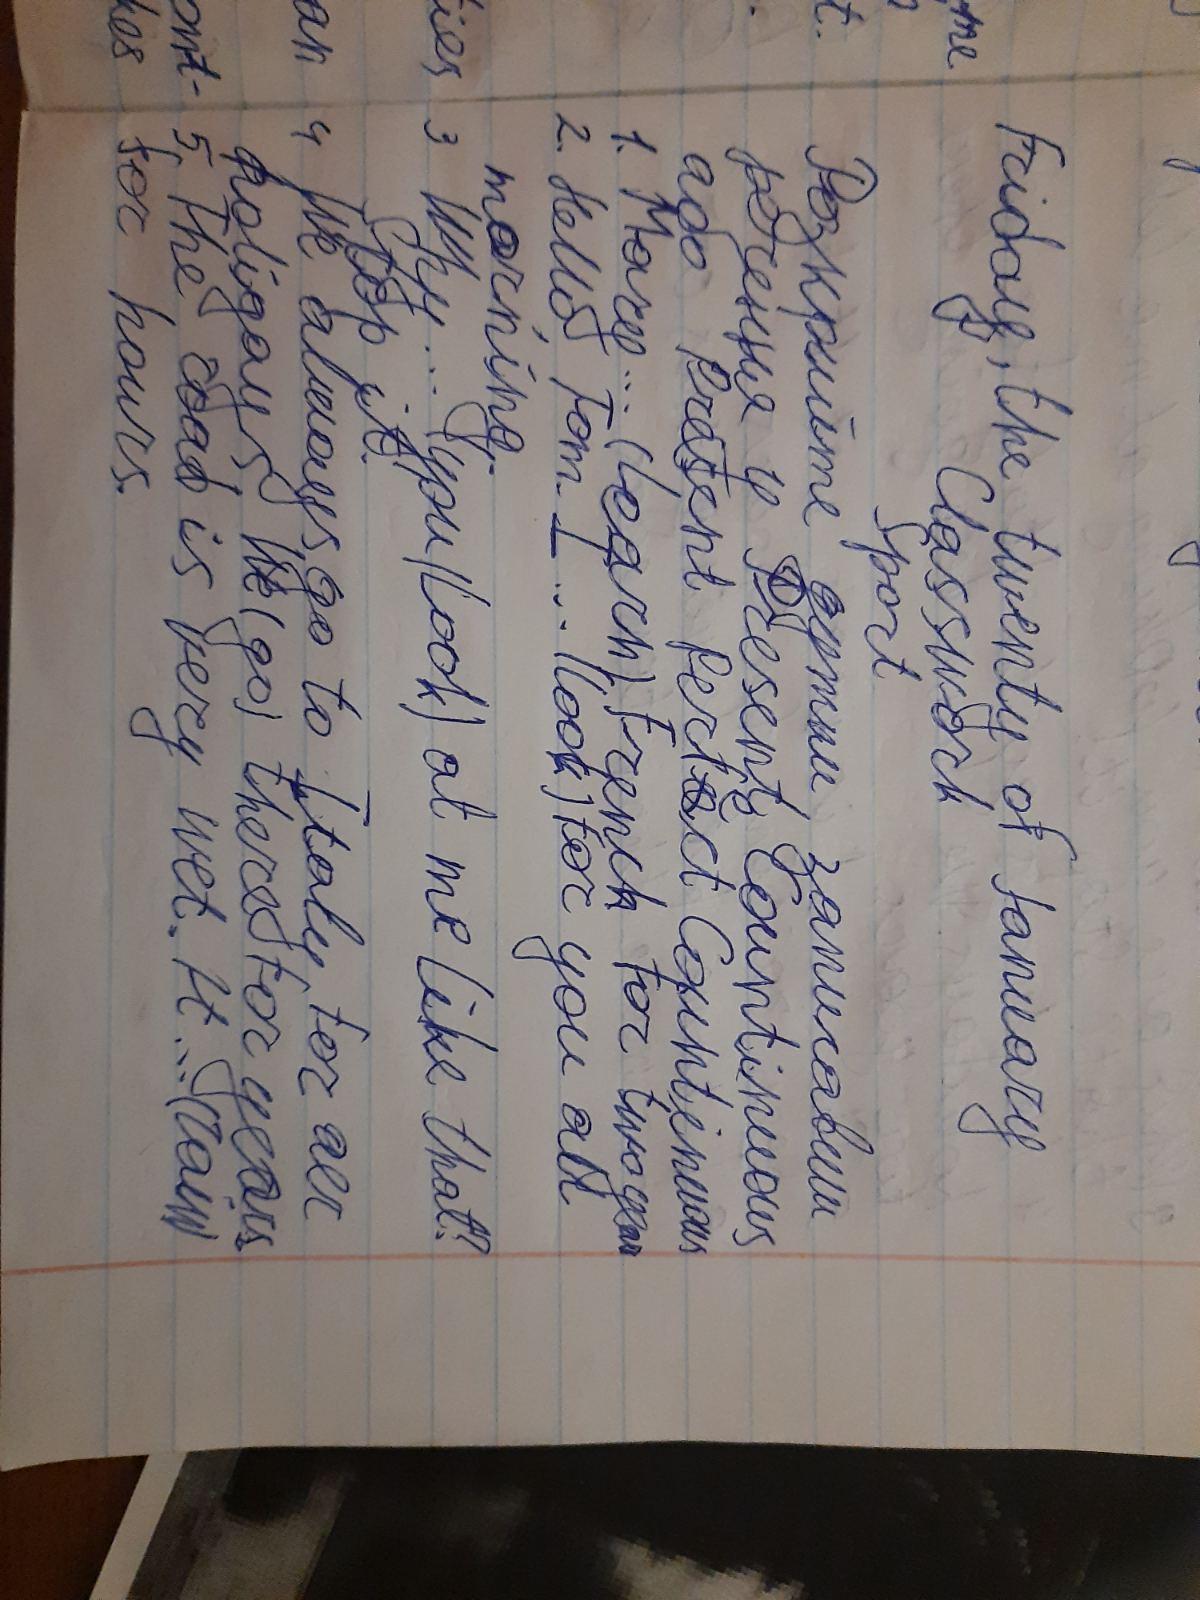 Friday, the twenty of January
Classwork
Sport
Розкрийте дужки записавши
речення у Present Countinuous
або Present Perfect Countinuous
1. Marep... (learn) French for two year
2. Hello Tom. I ... (look) for you all
morning.
3 Why... you (look) at me like that?
Stop it!
4 We always go to Italy for aer
holigays We (go) there for years
5. The road is very wet. It ... (rain)
for hours.